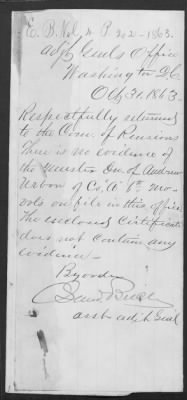 E. B. Vol 4 P. 202 - 1863.
Adjt Genls Office
Washington D.C.
Oct 31, 1863.
Respectfully returned
to the Com. of Pensions
There is no evidence of
the Muster In of Andrew
of Co "A" 1st Mo
vols on file in this office
The enclosed Certificate
does not contain any
evidence -
By order
asst adjt Genl